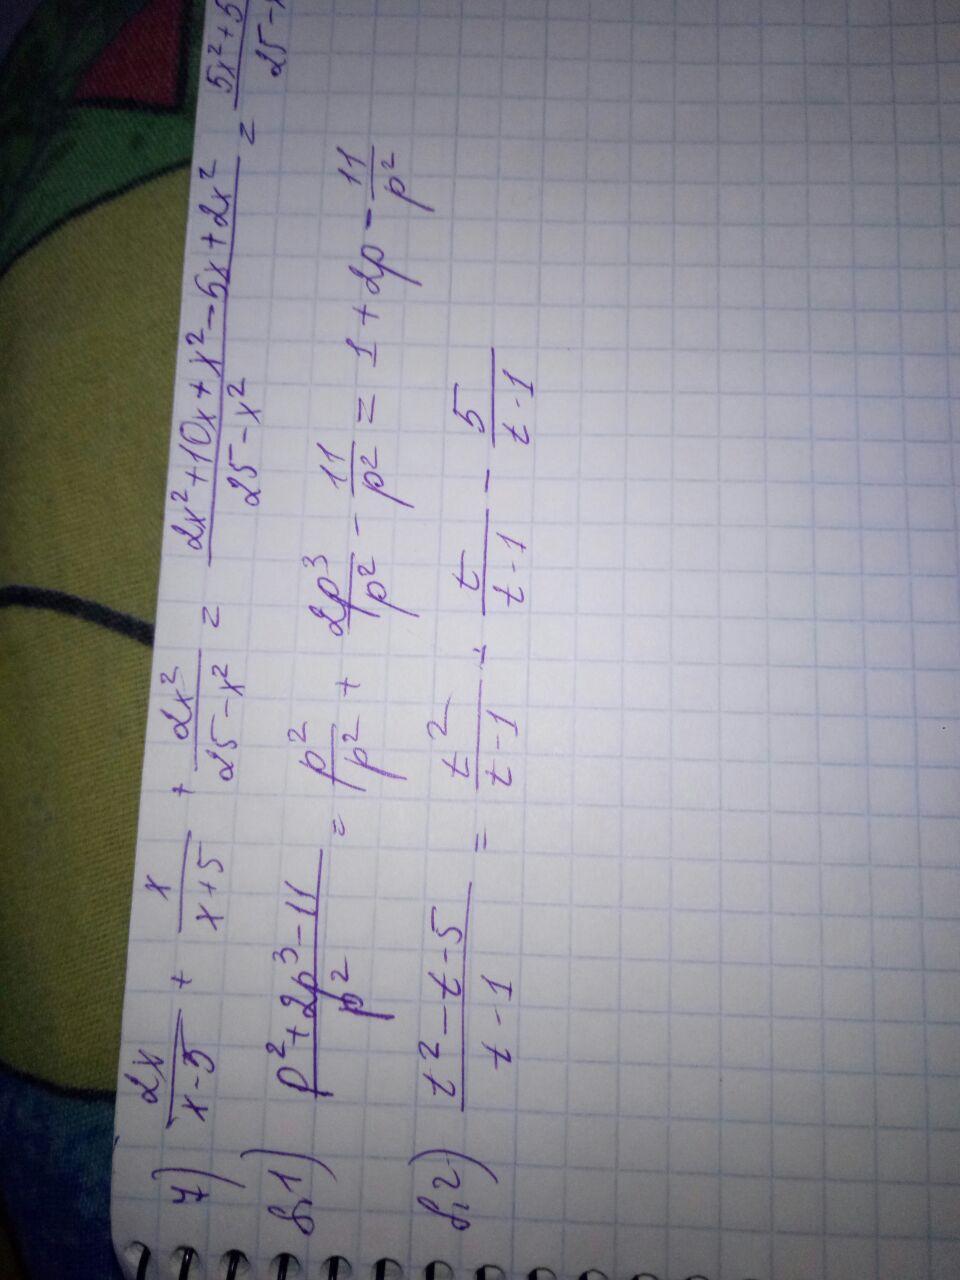 7) 2x/(x-5) + x/(x+5) + 2x²/(25-x²) = (2x²+10x+x²-5x+2x²)/(25-x²) = (5x²+5
25-
8,1) (p²+2p³-11)/p² = p²/p² + 2p³/p² - 11/p² = 1 + 2p - 11/p²
8,2) (t²-t-5)/(t-1) = t²/(t-1) - t/(t-1) - 5/(t-1)